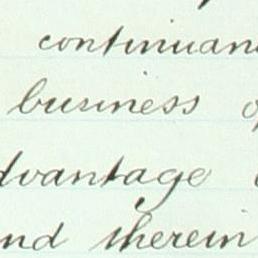 continuan
business o
dvantage
nd therein